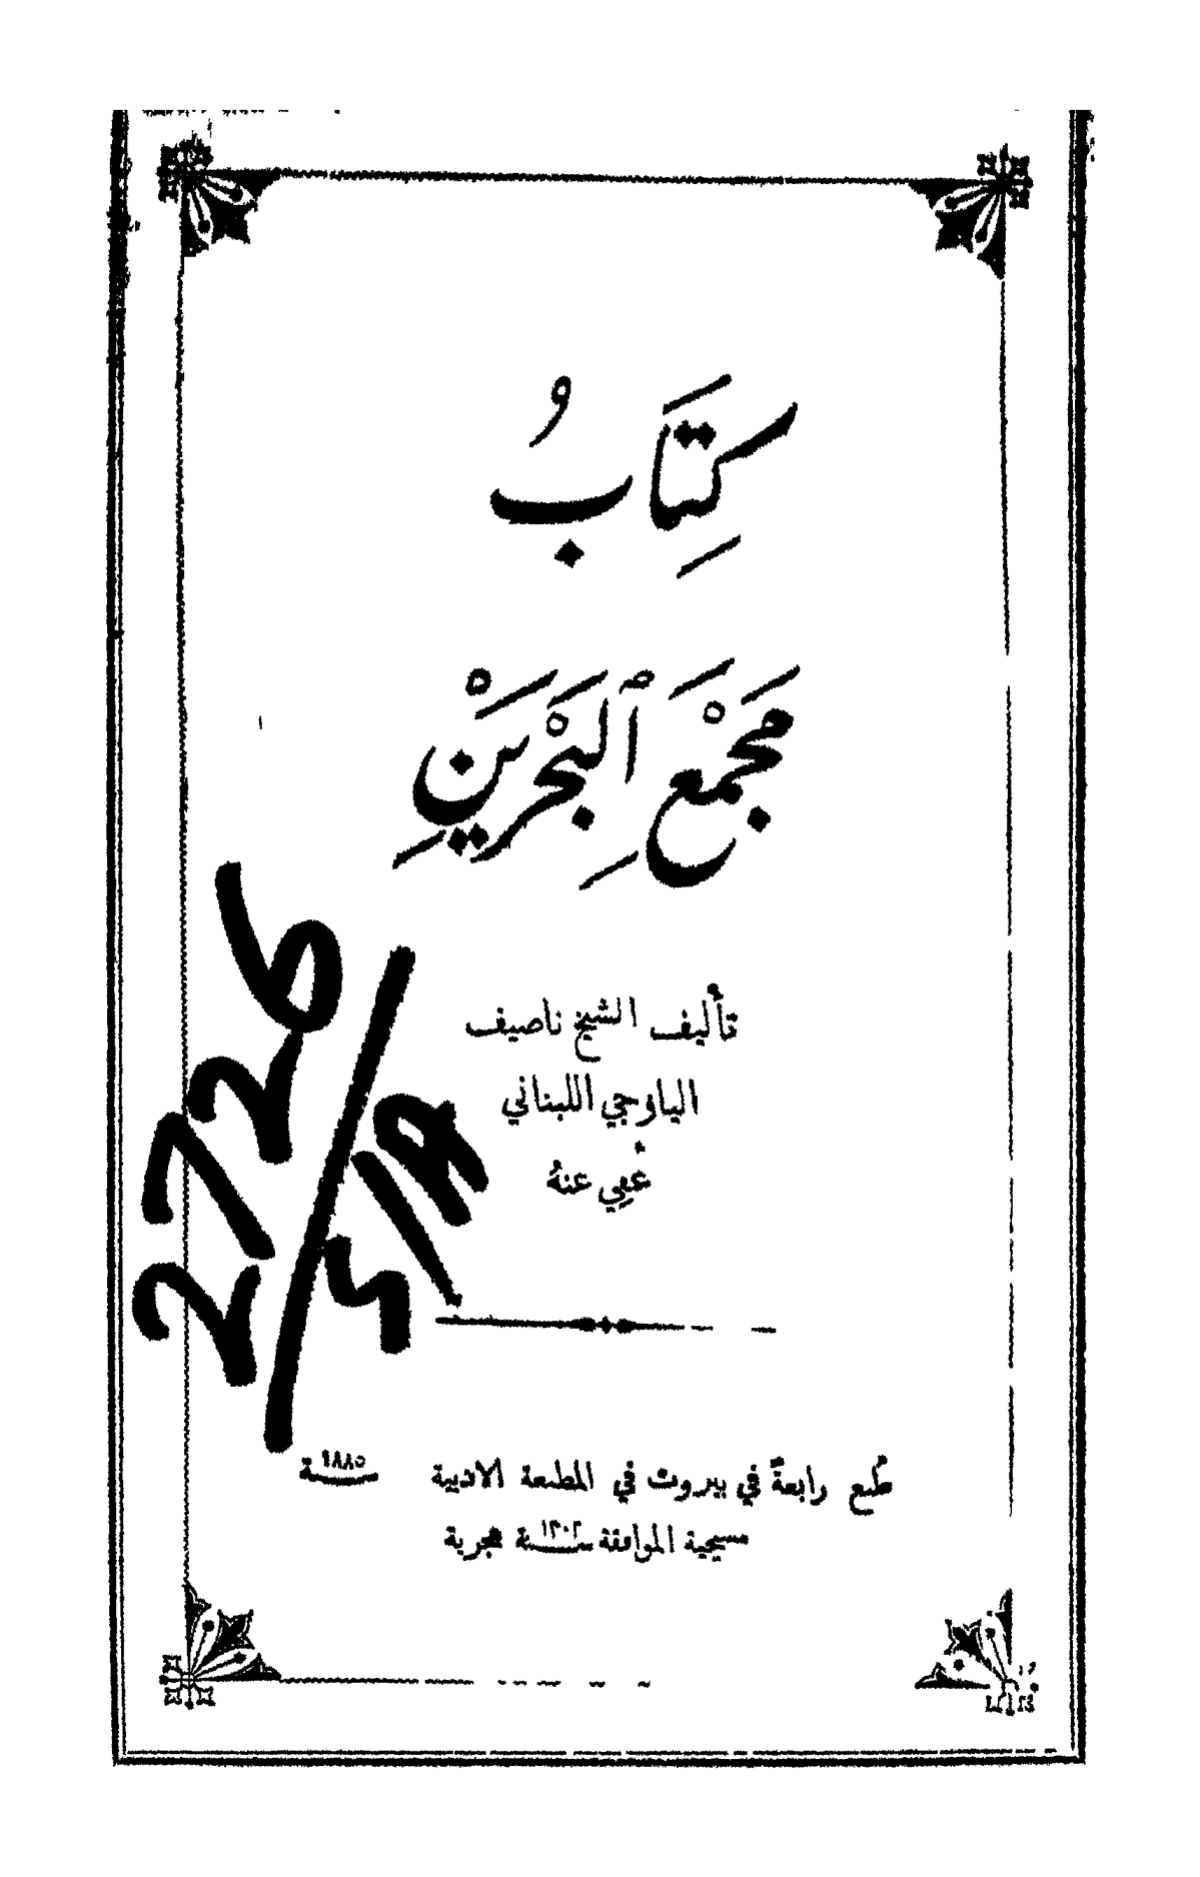 كِتَابُ
مَجْمَعَ ٱلْبَحْرَيْنِ
تأليف الشيخ ناصيف
اليازجي اللبناني
عُفِي عنهُ
طُبع رابعةً في بيروت في المطبعة الادبية سنة ١٨٨٥
مسيحية الموافقة سنة ١٣٠٢ هجرية
2726